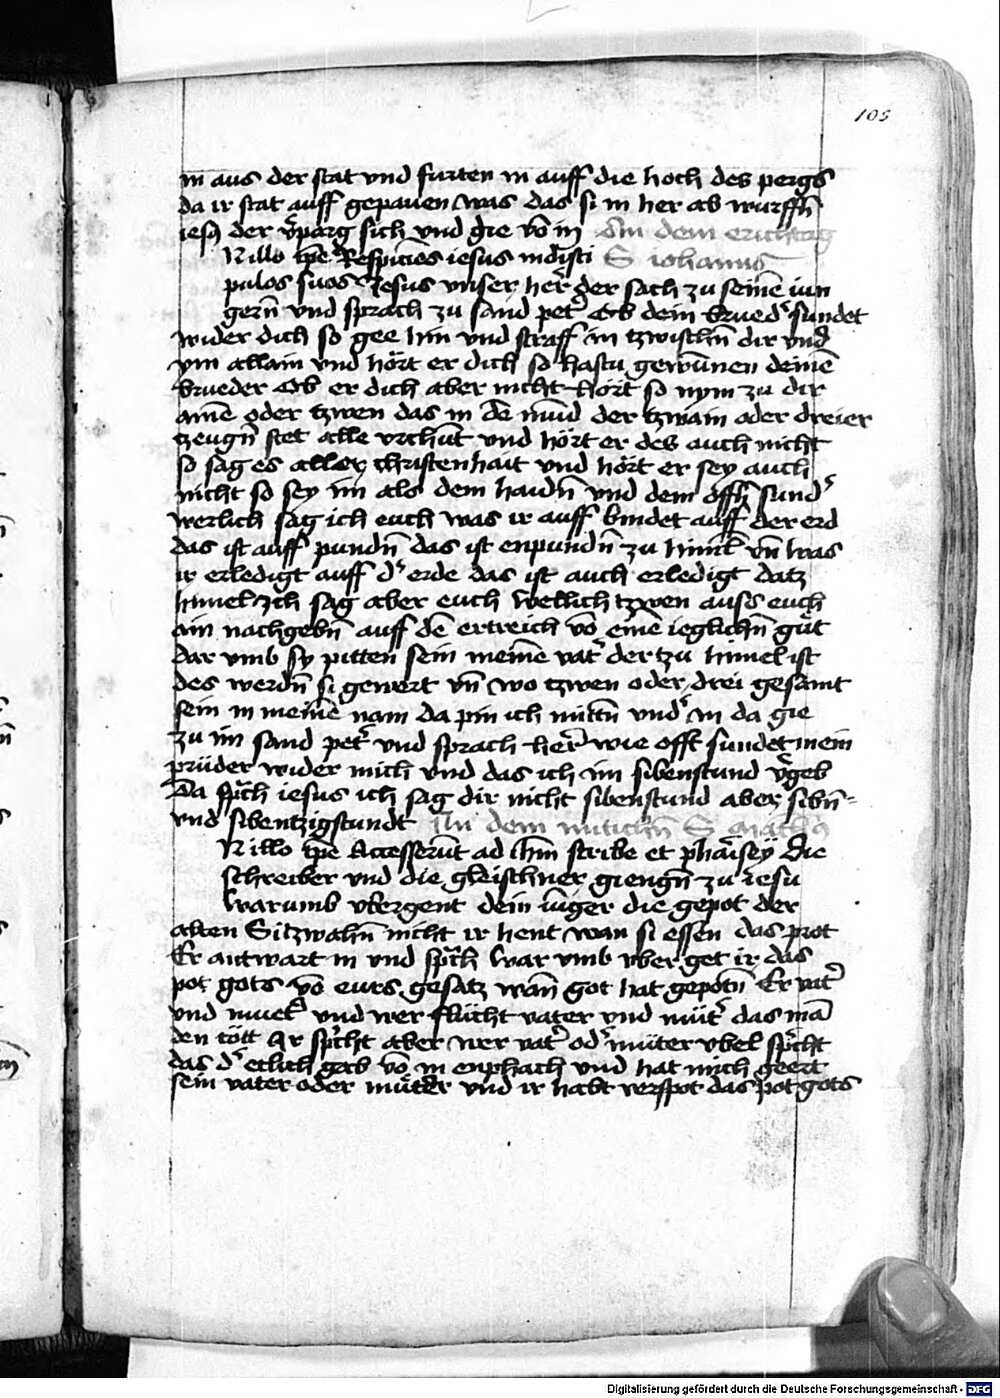 105
in aus der stat vnd furten in auff die hoch des pergs
da ir stat auff gepauen was das si in her ab wurffn̄
iesꝰ der v̓parg sich vnd gie vō in An dem erichtag
N illo tp̄e Respiciēs iesus in disci S iohannis
pulos suos Jesus vnser her̓ der sach zu seinē iun
gern̄ vnd sprach zu sand pet̓ Ob dein brued̓ sundet
wider dich so gee hin vnd straff in tzwischn̄ dir vnd
ym allain vnd hört er dich so hastu gewūnen deinē
brueder Ob er dich aber nicht hört so nym zu dir
ainē oder tzwen das in dē mūd der tzwain oder dreier
tzeugn̄ stet alle vrchūt vnd hört er des auch nicht
so sag es aller christenhait vnd hört er sey auch
nicht so sey im als dem haidn̄ vnd dem offn̄ sund̓
werlich sag ich euch was ir auff bindet auff der erd
das ist auff pundn̄ das ist enpundn̄ zu himel vn̄ was
ir erledigt auff d̓ erde das ist auch erledigt datz
himel Ich sag aber euch wellich tzwen auss euch
ain nachgebn̄ auff dē ertreich vō einē ieglichn̄ güt
dar vmb sy pitten sein meinē vat̓ der tzu himel ist
des werdn̄ si gewert vn̄ wo tzwen oder drei gesamt
sein in meinē nam da pin ich mittn̄ vnd̓ in da gie
zu im sand pet̓ vnd sprach her̓ wie offt sundet mein
prüder wider mich vnd das ich im sibenstund v̓geb
Da sp̓ch iesus ich sag dir nicht sibenstund aber sibn̄=
vnd sibentzigstundt An dem mitichn̄ S Matheꝰ
N illo tp̄e Accesserūt ad ihm̄ scribe et pharisey Die
schreiber vnd die gleischner giengn̄ zu iesu
Warumb vbergent dein iūger die gepot der
alten Si tzwahn̄ nicht ir hent wan si essen das prot
Er antwart in vnd sp̓ch War vmb vber get ir das
pot gots vō eurs gesatz wan̄ got hat gepotn̄ Er vat̓
vnd muet̓ vnd wer flücht vater vnd müt̓ das mā
den tött Ar sp̓cht aber wer vat̓ od̓ müter vbel sp̓cht
das d̓ etlich gab vō in enphach vnd hat mich geert
sein vater oder müter vnd ir habt verspot das pot gots
Digitalisierung gefördert durch die Deutsche Forschungsgemeinschaft - DFG